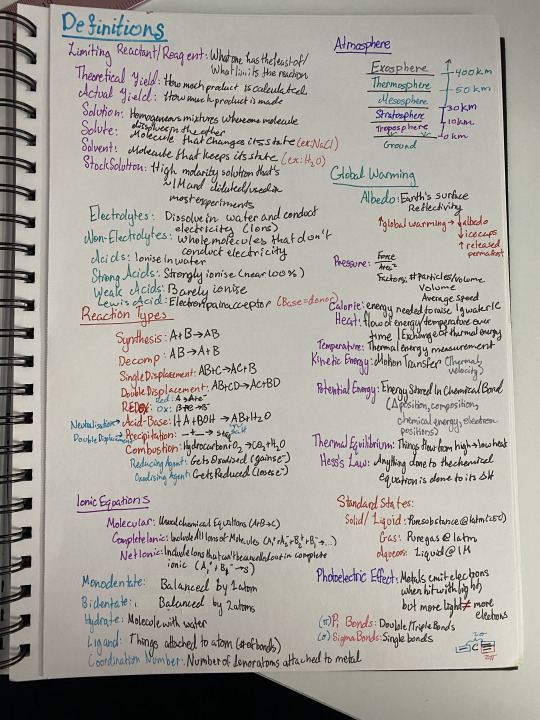 Definitions
Limiting Reactant/Reagent: What one has the least of/
What limits the reaction
Theoretical Yield: How much product is calculated
Actual Yield: How much product is made
Solution: Homogeneous mixtures where one molecule
dissolves in the other
Solute: Molecule that changes its state (ex: NaCl)
Solvent: Molecule that keeps its state (ex: H2O)
Stock Solution: High molarity solution that's
~1M and diluted/used in
most experiments
Electrolytes: Dissolve in water and conduct
electricity (Ions)
Non-Electrolytes: Whole molecules that don't
conduct electricity
Acids: Ionise in water
Strong Acids: Strongly ionise (near 100%)
Weak Acids: Barely ionise
Lewis Acid: Electron pair acceptor (Base=donor)
Reaction Types
Synthesis: A+B→AB
Decomp: AB→A+B
Single Displacement: AB+C→AC+B
Double Displacement: AB+CD→AC+BD
Red:
REDOX: Ox:
Neutralisation Acid-Base: HA+BOH→AB+H2O
Double Displacement Precipitation:
Combustion: Hydrocarbon O2→CO2+H2O
Reducing Agent: Gets Oxidised (gains e-)
Oxidising Agent: Gets Reduced (loses e-)
Ionic Equations
Molecular: Usual chemical Equations (A+B→C)
Complete Ionic: Include All Ions of Molecules
Net Ionic: Include Ions that can't be cancelled out in complete
ionic
Monodentate: Balanced by 1 atom
Bidentate: Balanced by 2 atoms
Hydrate: Molecule with water
Ligand: Things attached to atom (# of bonds)
Coordination Number: Number of ions or atoms attached to metal
Atmosphere
Exosphere
400km
Thermosphere
50km
Mesosphere
30km
Stratosphere
10km
Troposphere
0km
Ground
Global Warming
Albedo: Earth's surface
Reflectivity
↑global warming → ↓albedo
↓ice caps
↑ released
permafrost
Pressure: Force
Area2
Factors: #Particles/Volume
Volume
Average speed
Calorie: energy needed to raise 1g water 1C
Heat: flow of energy/temperature over
time | Exchange of thermal energy
Temperature: Thermal energy measurement
Kinetic Energy: Motion Transfer (Thermal,
velocity)
Potential Energy: Energy Stored In Chemical Bond
(Δposition, composition,
chemical energy, electron
positions)
Thermal Equilibrium: Things flow from high→low heat
Hess's Law: Anything done to the chemical
equation is done to its ΔH
Standard States:
Solid/Liquid: Pure substance @ 1atm (25C)
Gas: Pure gas @ 1atm
Aqueous: Liquid @ 1M
Photoelectric Effect: Metals emit electrons
when hit with light,
but more light ≠ more
electrons
(π) Pi Bonds: Double/Triple Bonds
(σ) Sigma Bonds: Single bonds